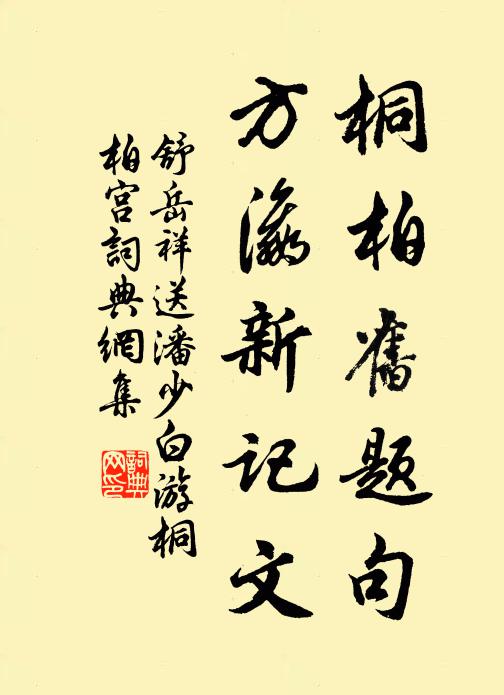 桐柏舊題句
方瀛新记文
舒岳祥送潘少白游桐
柏宫詞典網集
詞典網印